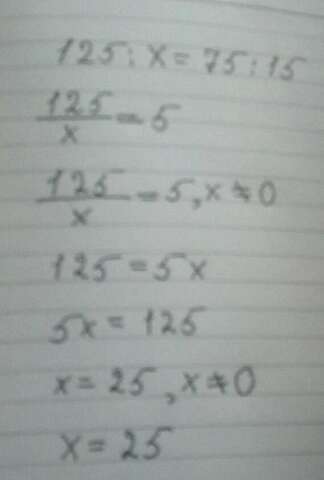 125 : x = 75 : 15
125/x = 5
125/x = 5, x ≠ 0
125 = 5x
5x = 125
x = 25, x ≠ 0
x = 25